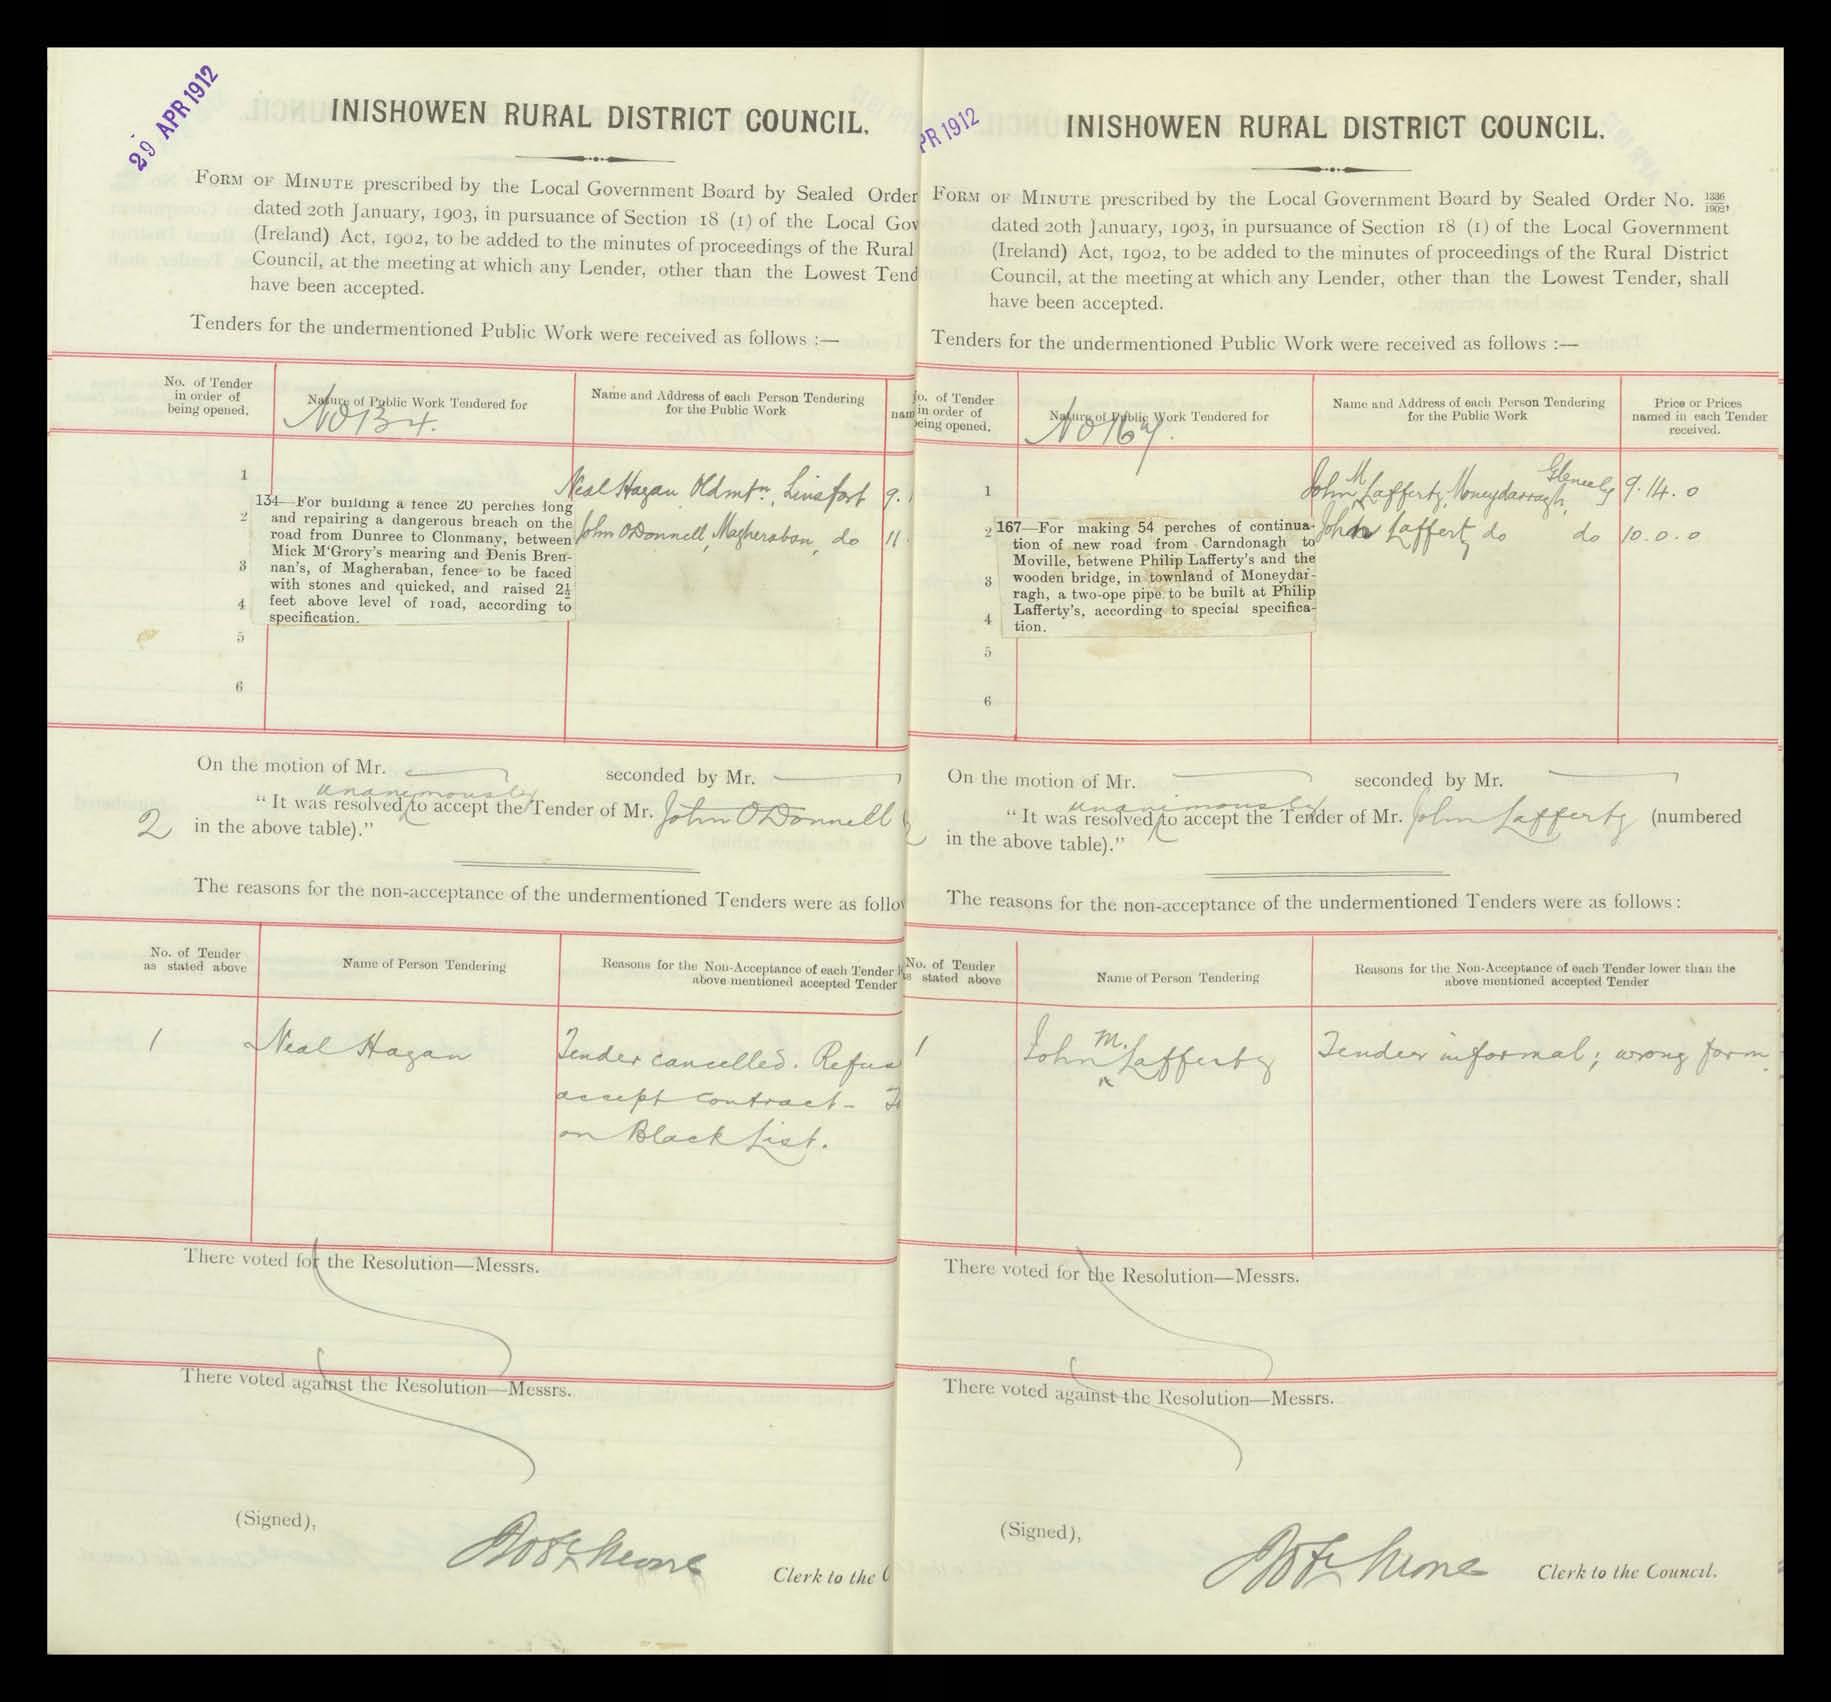 29 APR 1912
INISHOWEN RURAL DISTRICT COUNCIL.
FORM OF MINUTE prescribed by the Local Government Board by Sealed Order
dated 20th January, 1903, in pursuance of Section 18 (1) of the Local Gov
(Ireland) Act, 1902, to be added to the minutes of proceedings of the Rural
Council, at the meeting at which any Lender, other than the Lowest Tend
have been accepted.
Tenders for the undermentioned Public Work were received as follows :—
No. of Tender
in order of
being opened.
Nature of Public Work Tendered for
No 134.
Name and Address of each Person Tendering
for the Public Work
nam
1
Neal Hagan Oldmtn, Linsfort 9.
134—For building a fence 20 perches long
and repairing a dangerous breach on the
road from Dunree to Clonmany, between
Mick M'Grory's mearing and Denis Bren-
nan's, of Magheraban, fence to be faced
with stones and quicked, and raised 2½
feet above level of road, according to
specification.
2
John O'Donnell, Magheraban, do 11
3
4
5
6
On the motion of Mr. seconded by Mr.
unanimously
"It was resolved to accept the Tender of Mr. John O'Donnell
2 in the above table)."
The reasons for the non-acceptance of the undermentioned Tenders were as follow
No. of Tender
as stated above
Name of Person Tendering
Reasons for the Non-Acceptance of each Tender
above mentioned accepted Tender
1 Neal Hagan Tender cancelled. Refus
accept contract -
on Black List.
There voted for the Resolution—Messrs.
There voted against the Resolution—Messrs.
(Signed),
Clerk to the C
PR 1912
INISHOWEN RURAL DISTRICT COUNCIL.
FORM OF MINUTE prescribed by the Local Government Board by Sealed Order No. 1336/1902,
dated 20th January, 1903, in pursuance of Section 18 (1) of the Local Government
(Ireland) Act, 1902, to be added to the minutes of proceedings of the Rural District
Council, at the meeting at which any Lender, other than the Lowest Tender, shall
have been accepted.
Tenders for the undermentioned Public Work were received as follows :—
o. of Tender
in order of
being opened.
Nature of Public Work Tendered for
No 167.
Name and Address of each Person Tendering
for the Public Work
Price or Prices
named in each Tender
received.
1
John M. Lafferty, Moneydarragh, Gleneely 9. 14. 0
2
167—For making 54 perches of continua-
tion of new road from Carndonagh to
Moville, betwene Philip Lafferty's and the
wooden bridge, in townland of Moneydar-
ragh, a two-ope pipe to be built at Philip
Lafferty's, according to special specifica-
tion.
John Lafferty do do 10. 0. 0
3
4
5
6
On the motion of Mr. seconded by Mr.
unanimously
"It was resolved to accept the Tender of Mr. John Lafferty (numbered
2 in the above table)."
The reasons for the non-acceptance of the undermentioned Tenders were as follows:
No. of Tender
as stated above
Name of Person Tendering
Reasons for the Non-Acceptance of each Tender lower than the
above mentioned accepted Tender
1 John M. Lafferty Tender informal; wrong form.
There voted for the Resolution—Messrs.
There voted against the Resolution—Messrs.
(Signed),
Clerk to the Council.